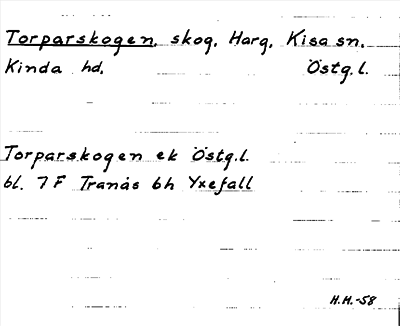 Torparskogen, skog, Harg, Kisa sn,
Kinda hd, Östg.l.
Torparskogen ek Östg.l.
bl. 7F Tranås bh Yxefall
H.H.-58